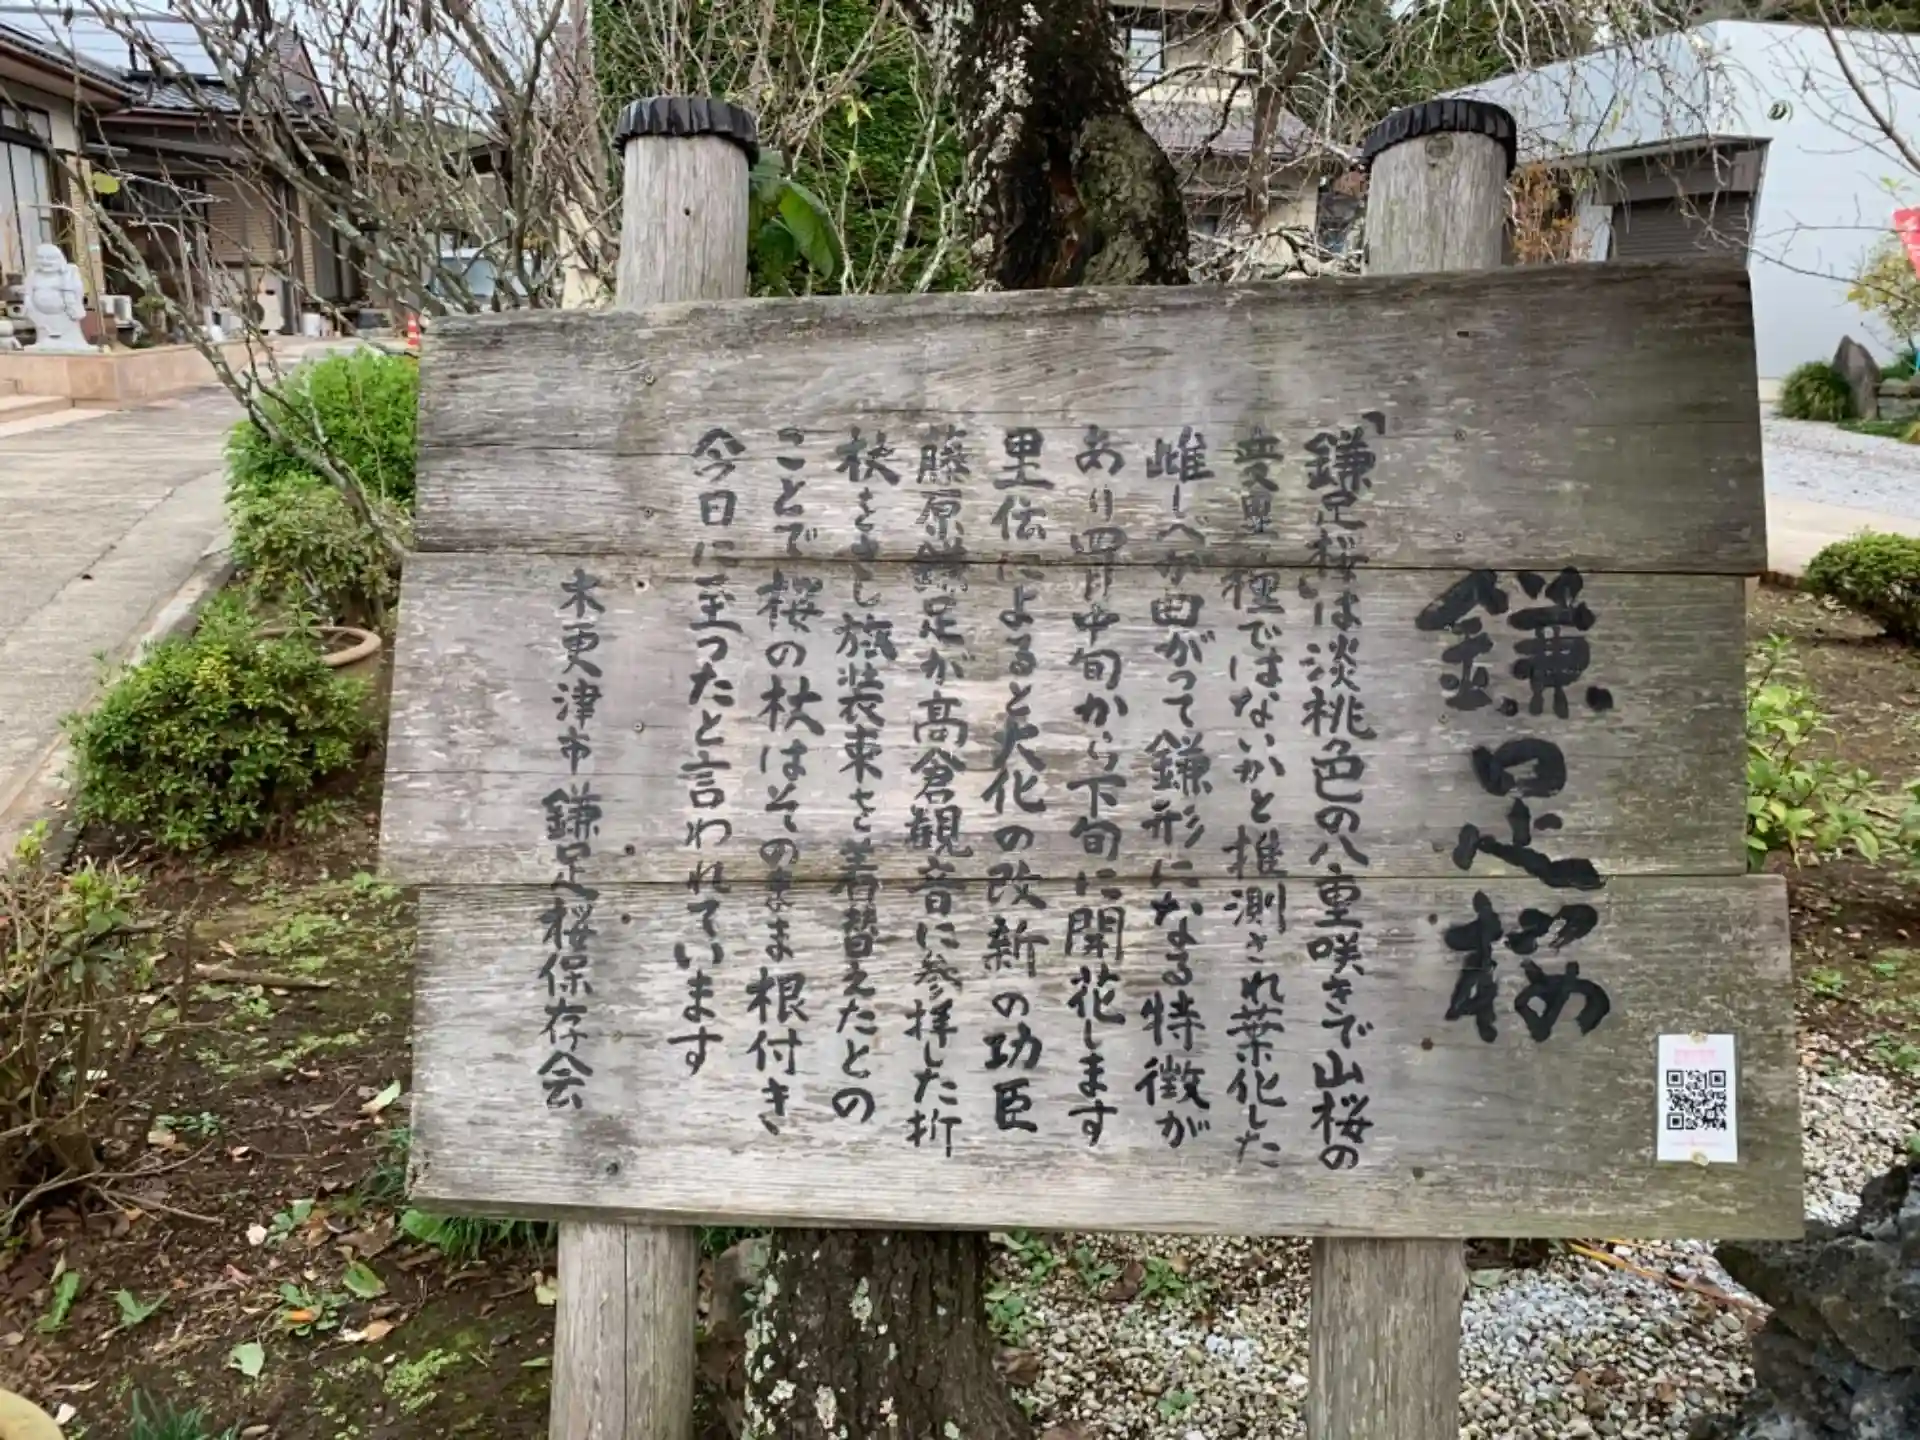 鎌足桜
「鎌足桜」は淡桃色の八重咲きで山桜の
変異種ではないかと推測され葉化した
雌しべが曲がって鎌形になる特徴が
あり四月中旬から下旬に開花します
里伝によると大化の改新の功臣
藤原鎌足が高倉観音に参拝した折
杖をさし旅装束を着替えたとの
ことで桜の杖はそのまま根付き
今日に至ったと言われています
木更津市鎌足桜保存会